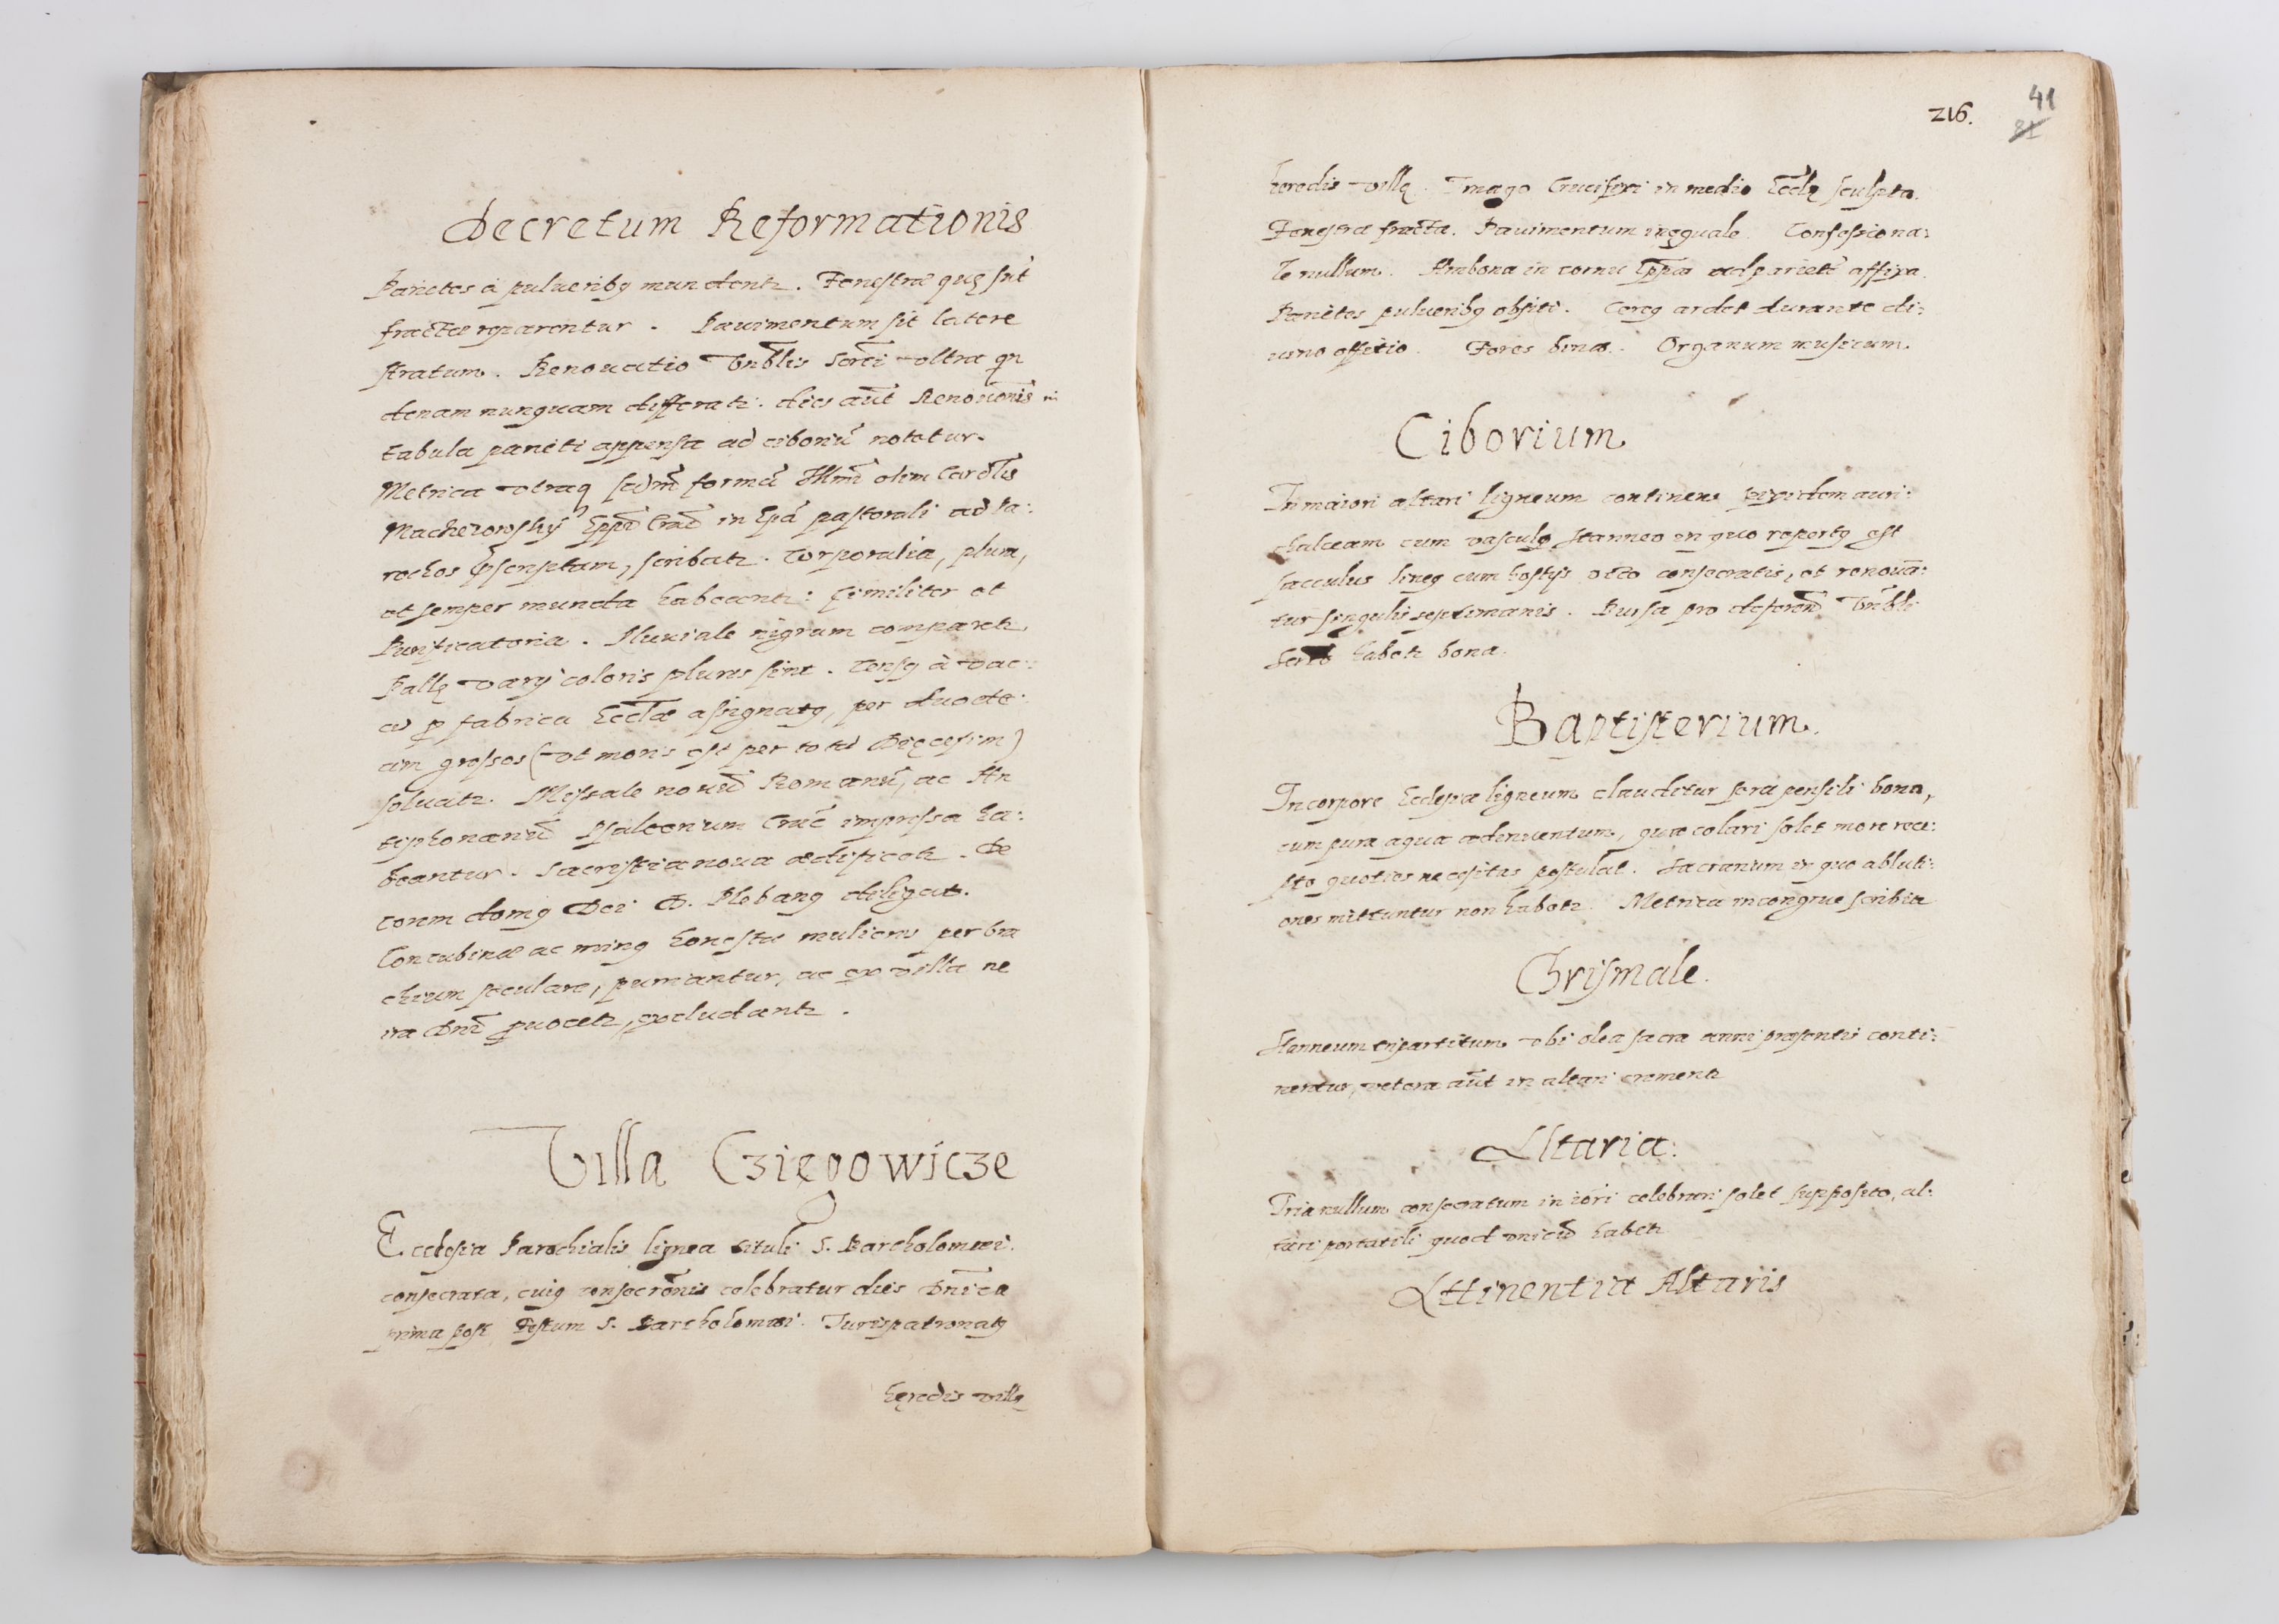 Decretum Reformationis
Parietes à pulveribꝫ mundentr. Fenestræ quę sūt
fractæ reparentur. Pavimentum sit latere
stratum. Renovatio Vnblis Scrti vltra qn
denam nunquam differatr. dies aūt Renovōnis in
tabula parieti appensa ad ciboriū notetur.
Metrica vtraqꝫ scdm̄ formā Illmi olim Cardlis
Macheiowskÿ Ep̄pi Crac̄ in Ep̄a pastorali ad Pa:
rochos p̄scriptam, scribatr. Corporalia, plura,
et semper munda habeantr: similiter et
Purificatoria. Pluviale nigrum comparetr
Pallę varÿ coloris plures sint. Censꝫ à vac:
is p̱ fabrica Eccliæ assignatꝫ, per duode:
cim grossos (vt moris est per totā Dięcesim)
solvatr. Missale novū Romanū, ac An
tiphonariū Psalterium Crac̄ impressa ha:
beantur. Sacristia nova ædificetr. De
corem domꝫ Dei D. Plebanꝫ diligat.
Concubinæ ac minꝫ honestæ mulieres per bra
chium seculare, puniantur, ac ex villa ne
ira Dni p̱vocetr, excludantr.
Villa Czięgowicze
Ecclesia Parochialis lignea tituli S. Bartholomæi.
consecrata, cuiꝫ consecrōnis celebratur dies Dnica
prima post Festum S. Bartholomæi. Jurispatronatꝫ
hęredis villę
216.
41
81
heredis villę. Imago Crucifixi in medio Ecclę sculpta.
Fenestra fracta. Pavimentum inequale. Confessiona:
le nullum. Ambona in cornu Epp̄a ad parietē affixa.
Parietes pulveribꝫ obsiti. Cereꝫ ardet durante di:
uino offitio. Fores binæ. Organum musicum.
Ciborium
In maiori altari ligneum continens pixidem auri:
chalceam cum vasculo stanneo in quo repertꝫ est
sacculus lineꝫ cum hostÿs octo consecratis, et renovā:
tur singulis septimanis. Bursa pro deferend Vnbli
Scrto habetr bona.
Baptisterium.
In corpore Ecclesiæ ligneum clauditur sera pensili bona,
cum pura aqua adinventum, quæ colari solet more rece:
pto quoties necessitas postulat. Sacrarium in quo abluti:
ones mittuntur non habetr. Metrica incongrue scribitr
Chrismale.
Stanneum tripartitum vbi olea sacra anni præsentis conti:
nentur, vetera aūt in altari crementr
Altaria:
Tria nullum consecratum in iōri celebrari solet supposito, al:
tari portatili quod vnicū habetr
Attinentia Altaris